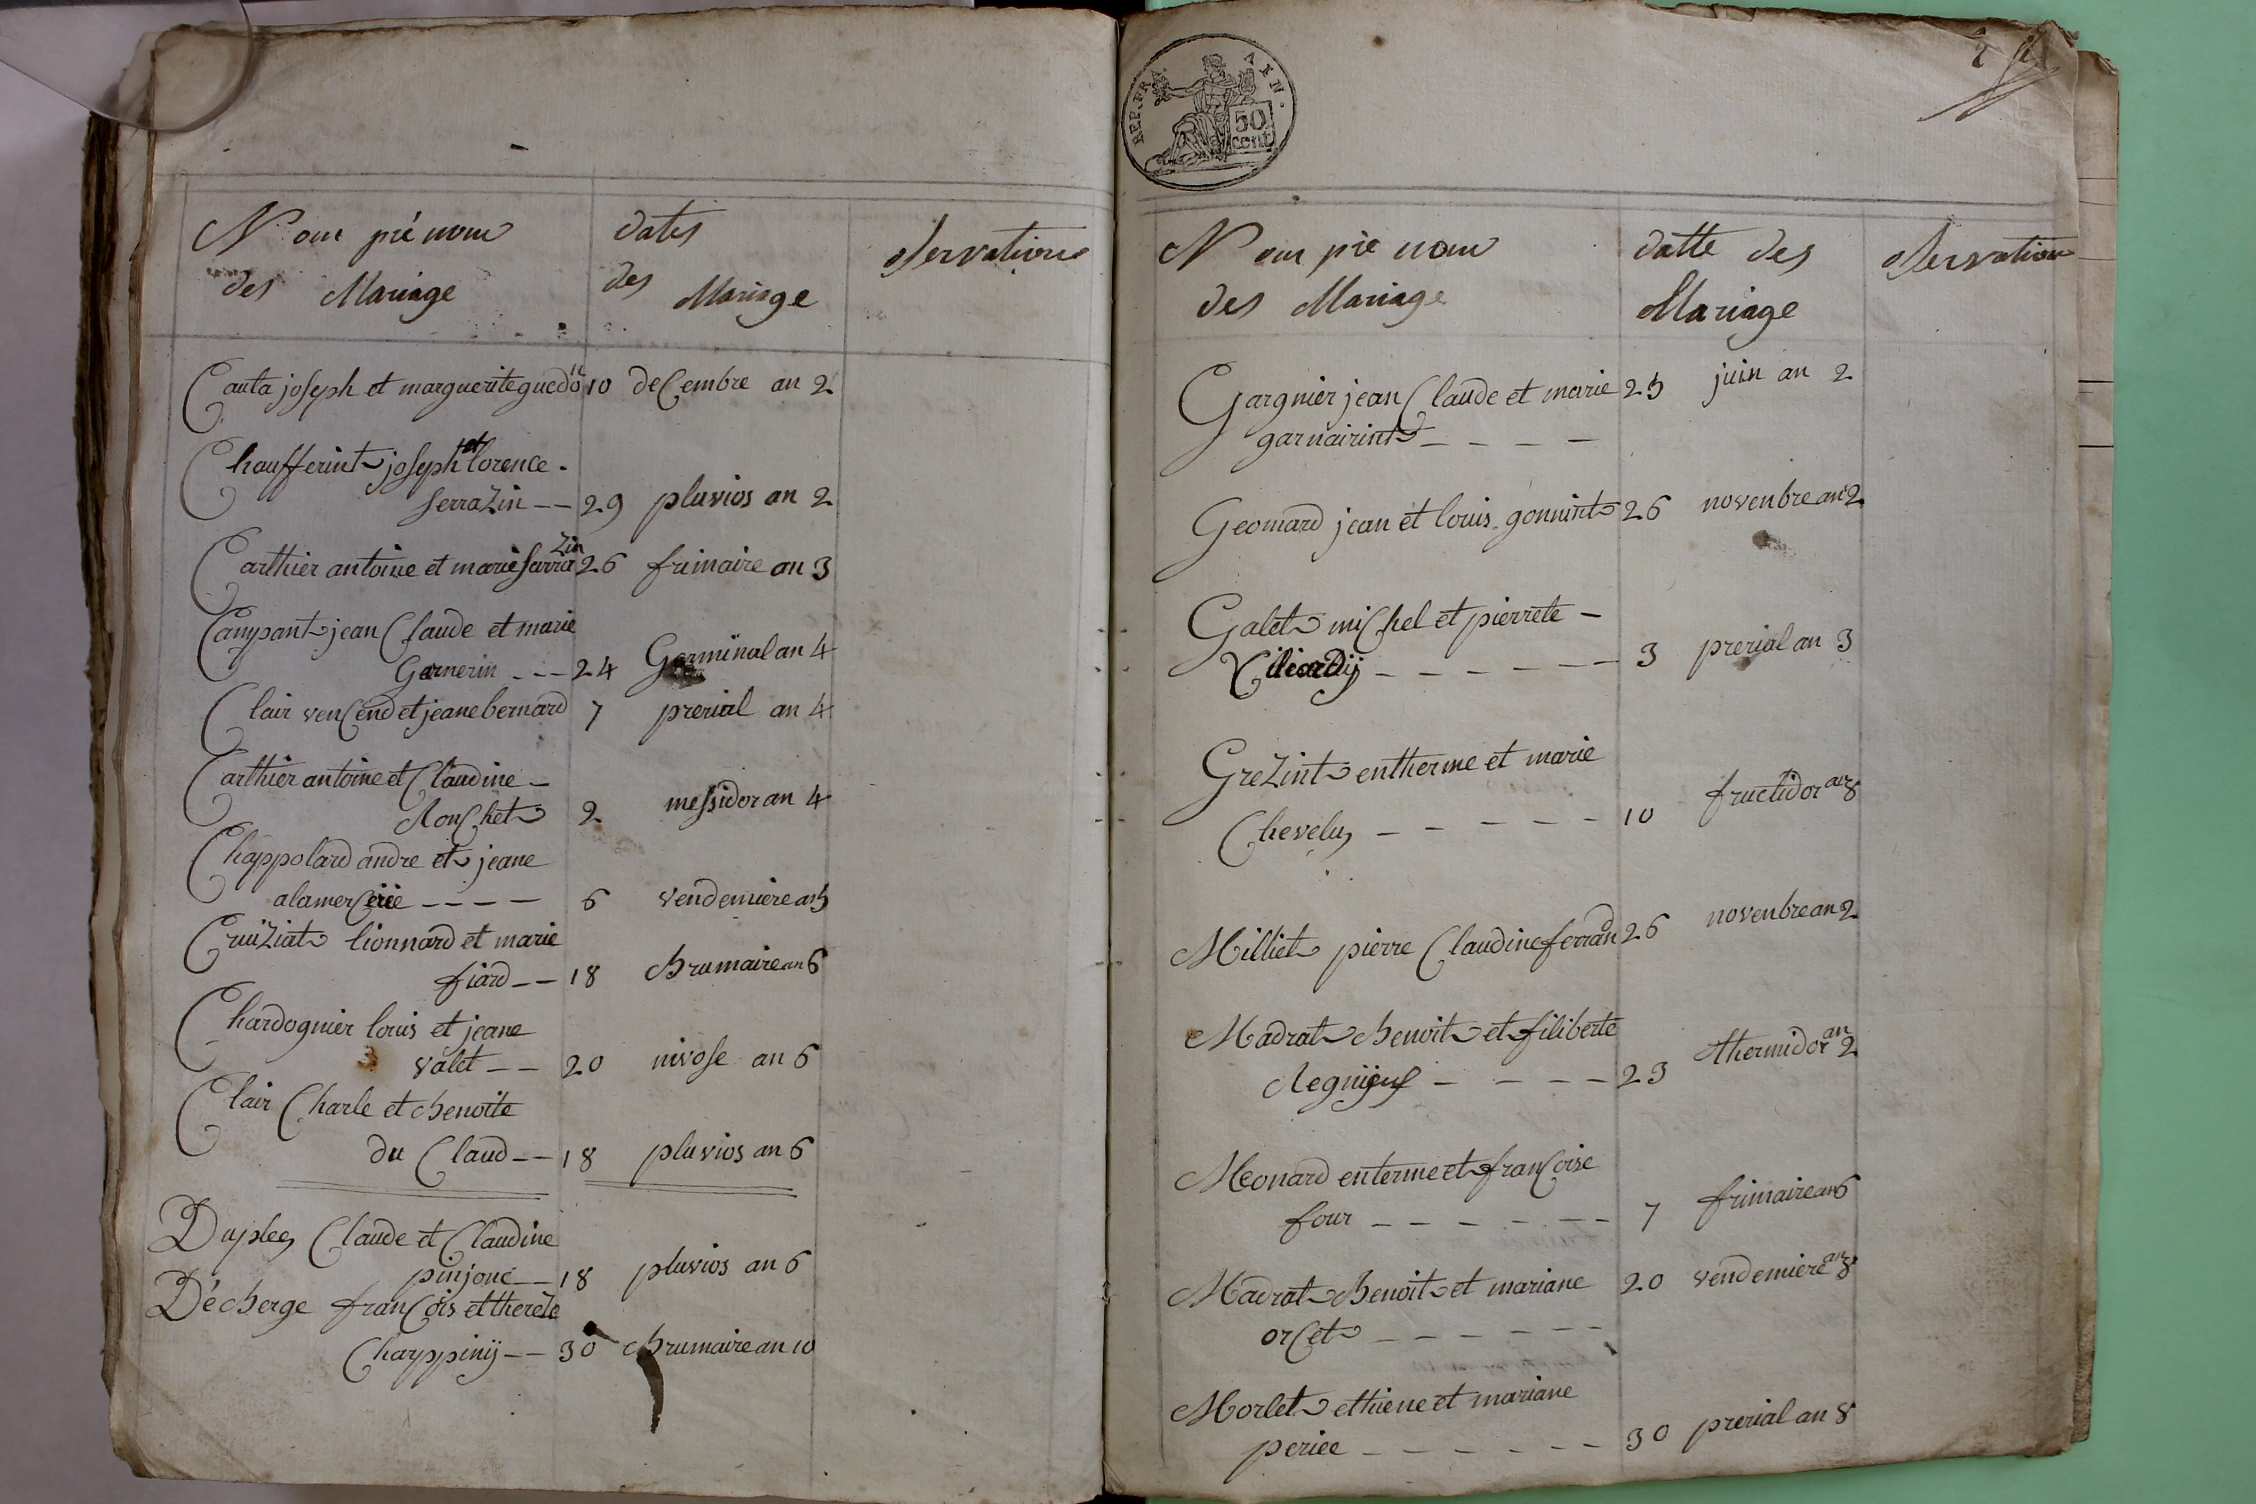 Nom prénom
des Mariage
dates
des Mariage
observations
Cauta joseph et marguerite guedon 10 decembre an 2
Chaufferint joseph et lorence
serrazin -- 29 pluvios an 2
Carthier antoine et marie sarrazin 26 frimaire an 3
Campant jean Claude et marie
Garnerin --- 24 Germinal an 4
Clair vencend et jeane bernard 7 prerial an 4
Carthier antoine et Claudine -
RonChet 2 messidor an 4
Chappolard andre et jeane
alamerCerie ---- 6 vendemiere an 5
Cruïziat lionnard et marie
fiard -- 18 brumaire an 6
Chardognier louis et jeane
valet -- 20 nivose an 6
Clair Charle et benoite
du Claud -- 18 pluvios an 6
Duplex Claude et Claudine
pinjone -- 18 pluvios an 6
Décherge franCois et therese
Chappinij -- 30 brumaire an 10
REP. FRA. TIMB.
50
cent
2
Nom pre nom
des Mariage
datte des
Mariage
observation
Gargnier jean Claude et marie 25 juin an 2
garnairint ----
Geomard jean et louis gonnint 26 novenbre an 2
Galet miChel et pierrete -
------ 3 prerial an 3
Grezint entherme et marie
Chevelu ----- 10 fructidor an 8
Milliet pierre Claudine ferrand 26 novenbre an 2
Madrat benoit et filiberte
---- 23 thermidor an 2
Meonard enterme et franCoise
four ------ 7 frimaire an 6
Madrat Benoit et mariane 20 vendemiere an 8
orCet ------
Morlet ethiene et mariane
periee ------ 30 prerial an 8